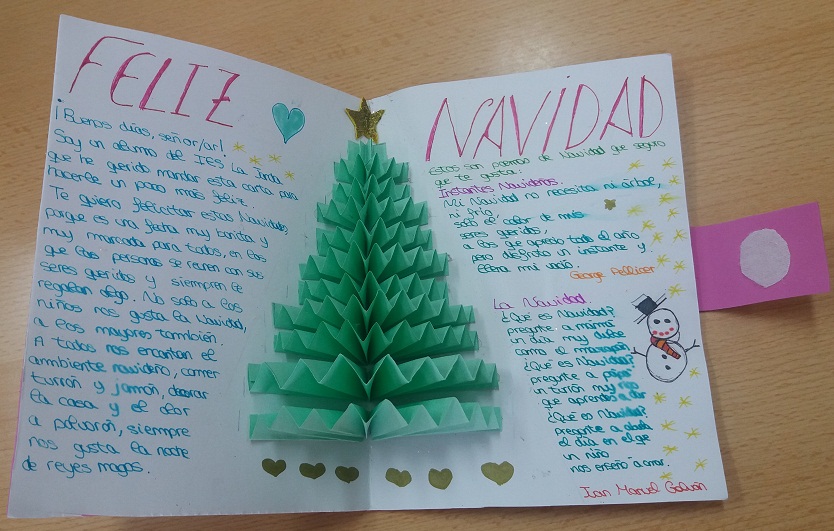 FELIZ
¡Buenos días, señor/ar!
Soy un alumno del IES La Jarda
que he querido mandar esta carta para
hacerle un poco más feliz.
Te quiero felicitar estas Navidades,
porque es una fecha muy bonita y
muy marcada para todos, en las
que las personas se reunen con sus
seres queridos y siempre se
regalan algo. No solo a los
niños nos gusta la Navidad,
a los mayores también.
A todos nos encantan el
ambiente navideño, comer
turrón y jamón, decorar
la casa y el olor
a polvorón, siempre
nos gusta la noche
de reyes magos.
NAVIDAD
Estos son poemas de Navidad que seguro
que te gusta:
Instantes Navideños.
Mi Navidad no necesita ni árbol,
ni frío
solo el calor de mis
seres queridos,
a los que aprecio todo el año
pero disfruto un instante y
llena mi vacío.
George Pellicer
La Navidad.
¿Qué es Navidad?
pregunte a mamá
un día muy dulce
como el mazapán
¿Qué es Navidad?
pregunte a papá
un turrón muy rico
que aprendo a dar
¿Qué es Navidad?
pregunte a abuela
el día en el que
un niño
nos enseñó a amar.
Juan Manuel Galván